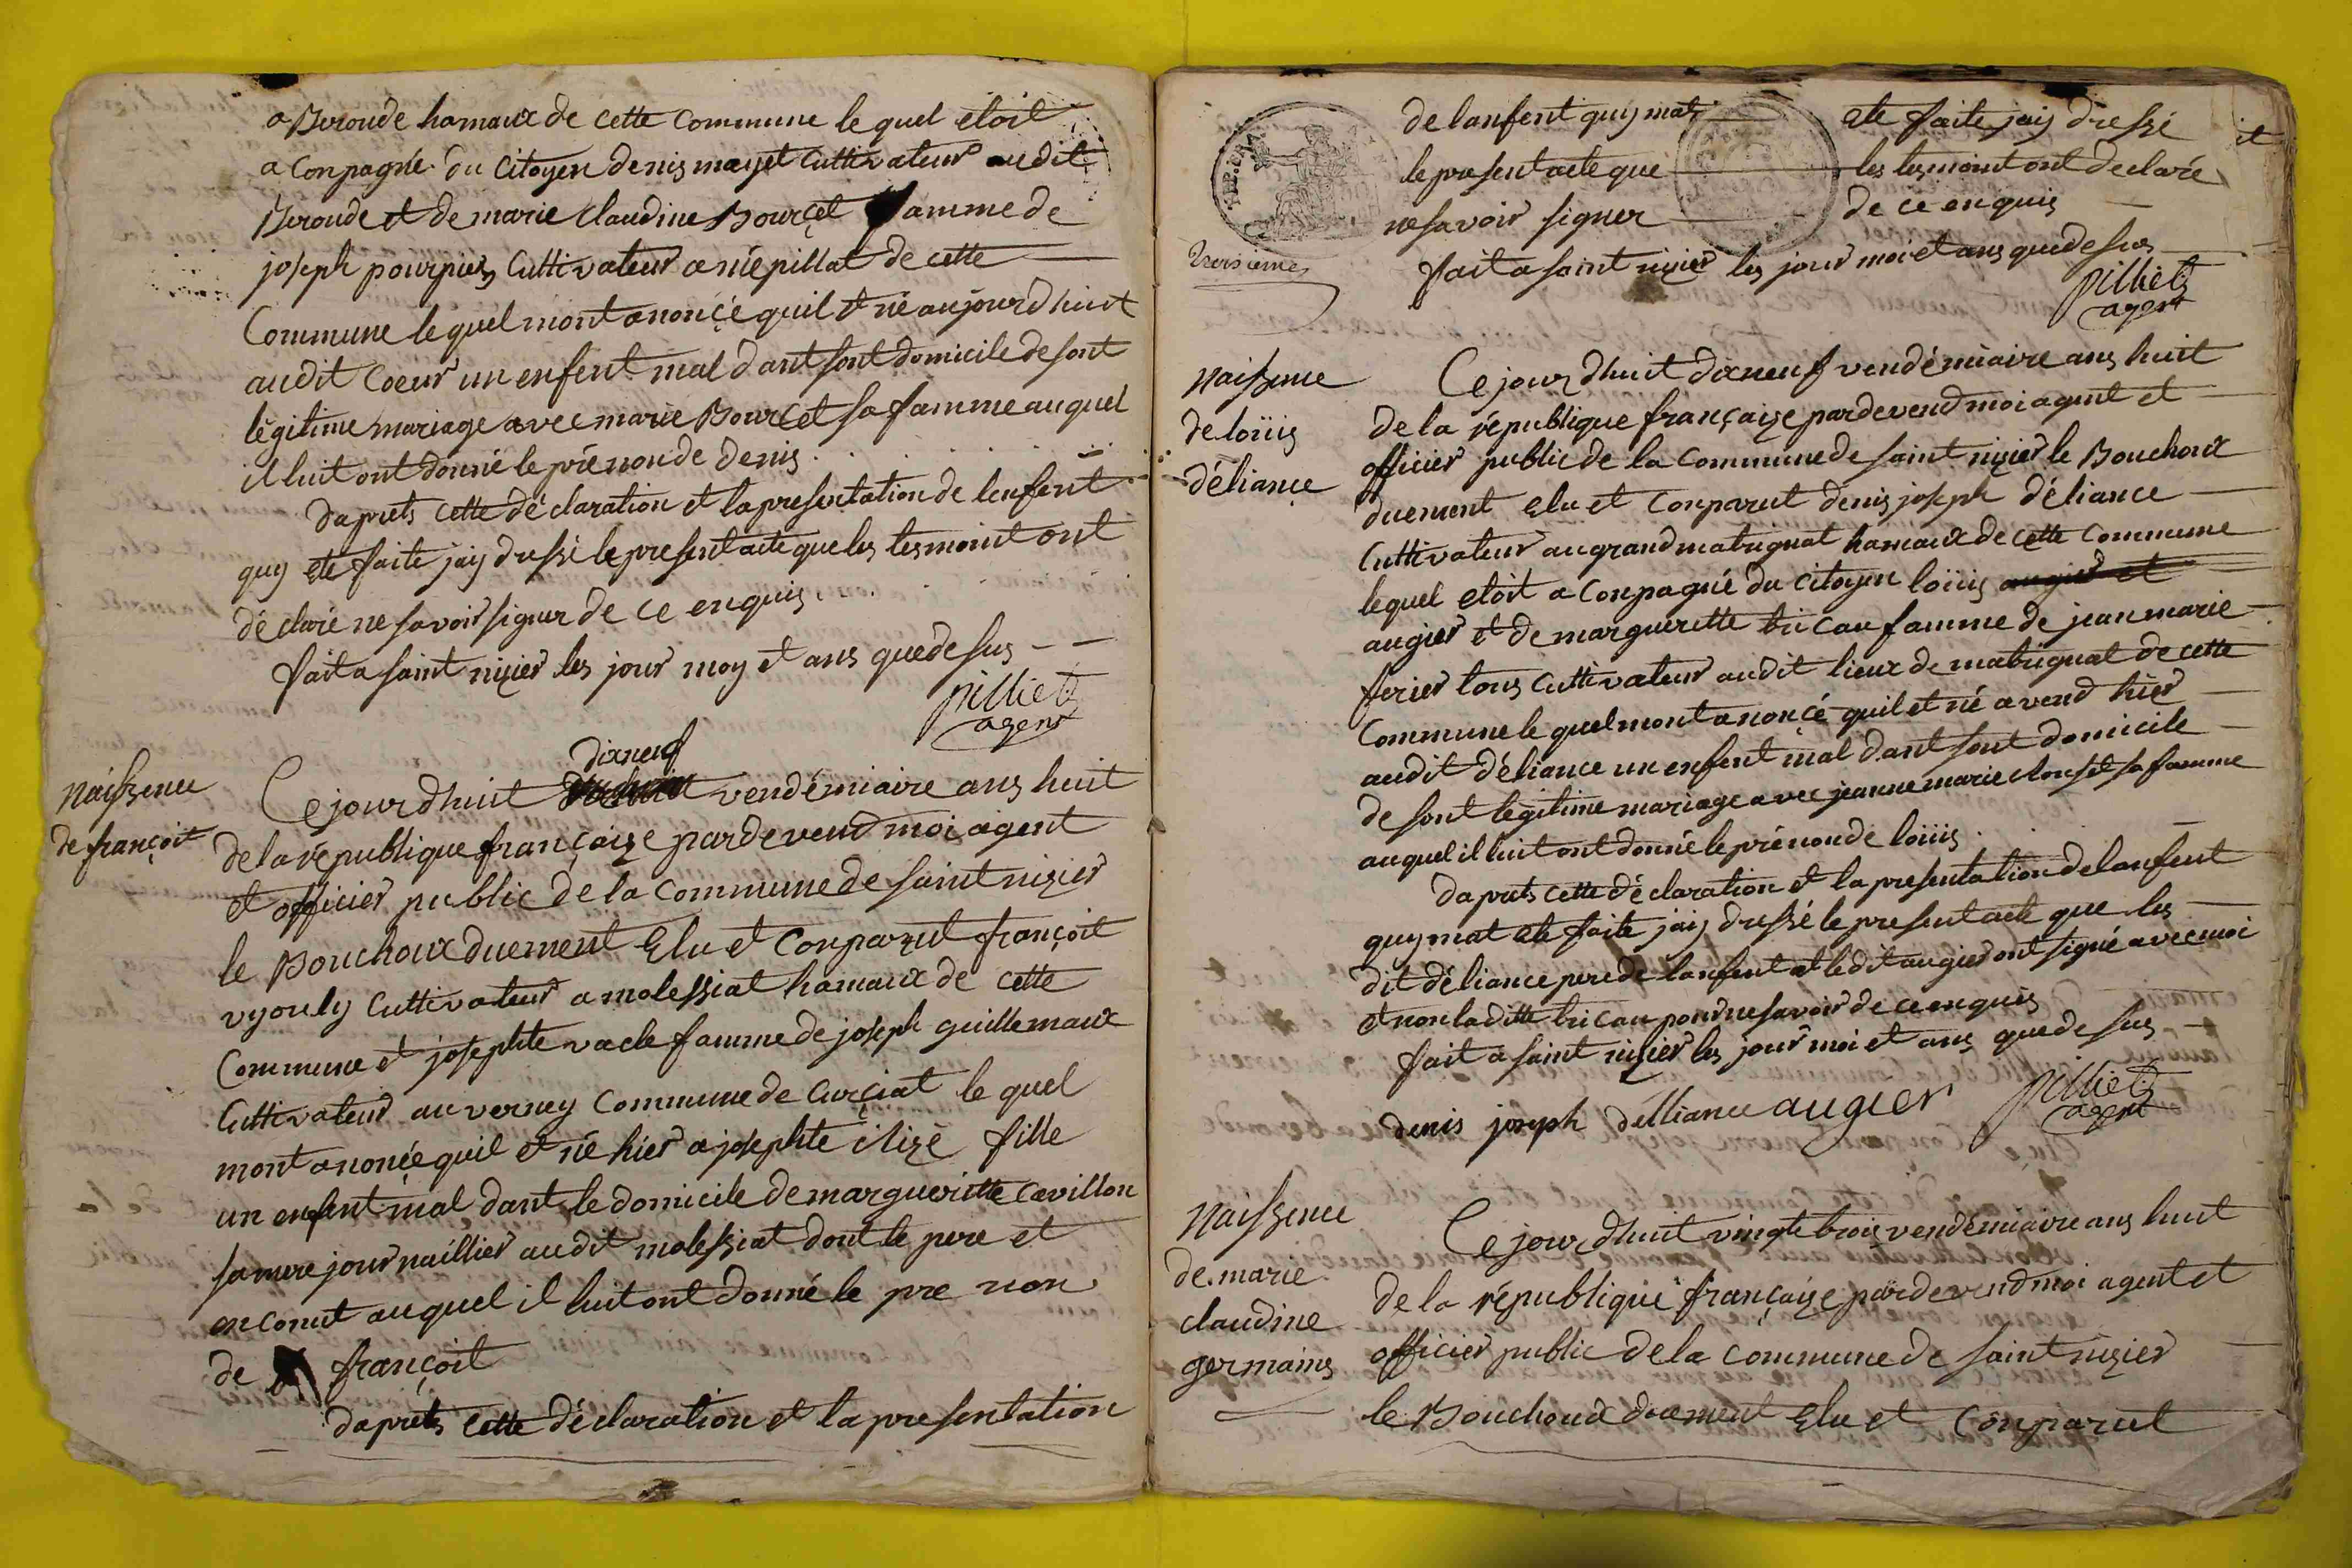 a Beroude hamaux de cette Commune le quel etoit
a Conpagnée du Citoyen denis mayet Cultivateur audit
Beroude et de marie Claudine Bourcet famme de
joseph pourpier Cultivateur a népillat de cette
Commune le quel mont anoncé quil et né aujourdhuit
audit Coeur un enfent mal dant sont domicile de sont
légitime mariage avec marie Bourcet sa famme auquel
il luit ont donné le prénon de denis
daprets cette déclaration et la presentation de lenfent
quy ete faite jaiy dressé le present acte que les tesmoint ont
déclaré ne savoir signer de ce enquis
fait a saint nizier les jour moy et ans que de sus
pilliet
agent
naissence
de françoit
dixneuf
Ce jourdhuit vendémiaire ans huit
de la république françaize pardevend moi agent
et officier public de la Commune de saint nizier
le Bouchoux duement Elu et Conparut françoit
vyouly Cultivateur a molessiat hamaux de cette
Commune et josephte vacle famme de joseph guillemaux
Cultivateur au verney Commune de Curciat le quel
mont anoncé quil et né hier a josephte Clizé fille
un enfent mal dant le domicile de margueritte Cavillon
sa mere journaillier audit molessiat dont le pere et
en conut auquel il luit ont donné le pre non
de françoit
daprets cette déclaration et la presentation
REP. FRA
troisieme
de lanfent quy mat ete faite jaiy dressé
le present acte que les tesmoint ont declaré
ne savoir signer de ce enquis
fait a saint nizier les jour moi et ans que de sus
pilliet
agent
it
naissence
de loüis
déliance
Ce jourdhuit dixneuf vendémiaire ans huit
de la république françaize pardevend moi agent et
officier public de la Commune de saint nizier le Bouchoux
duement Elu et Conparut denis joseph déliance
Cultivateur au grand matrignat hamaux de cette Commune
lequel etoit a Conpagné du Citoyen loüis augier et
augier et de marguerette bricau famme de jean marie
ferier tous Cultivateur audit lieux de matrignat de cette
Commune le quel mont anoncé quil et né avend hier
audit déliance un enfent mal dant sont domicile
de sont légitime mariage avec jeanne marie sa famme
auquel il luit ont donné le prénon de loüis
daprets cette déclaration et la presentation de lanfent
quy mat ete faite jaiy dressé le present acte que les
dit déliance pere de lanfent et ledit augier ont signé avec moi
et non laditte bricau pour ne savoir de ce enquis
fait a saint nizier les jour moi et ans que de sus
denis joseph delliance augier pilliet
agent
naissence
de marie
claudine
germains
Ce jourdhuit vingte trois vendémiaire ans huit
de la république françaize pardevend moi agent et
officier public de la Commune de saint nizier
le Bouchoux duement Elu et Conparut